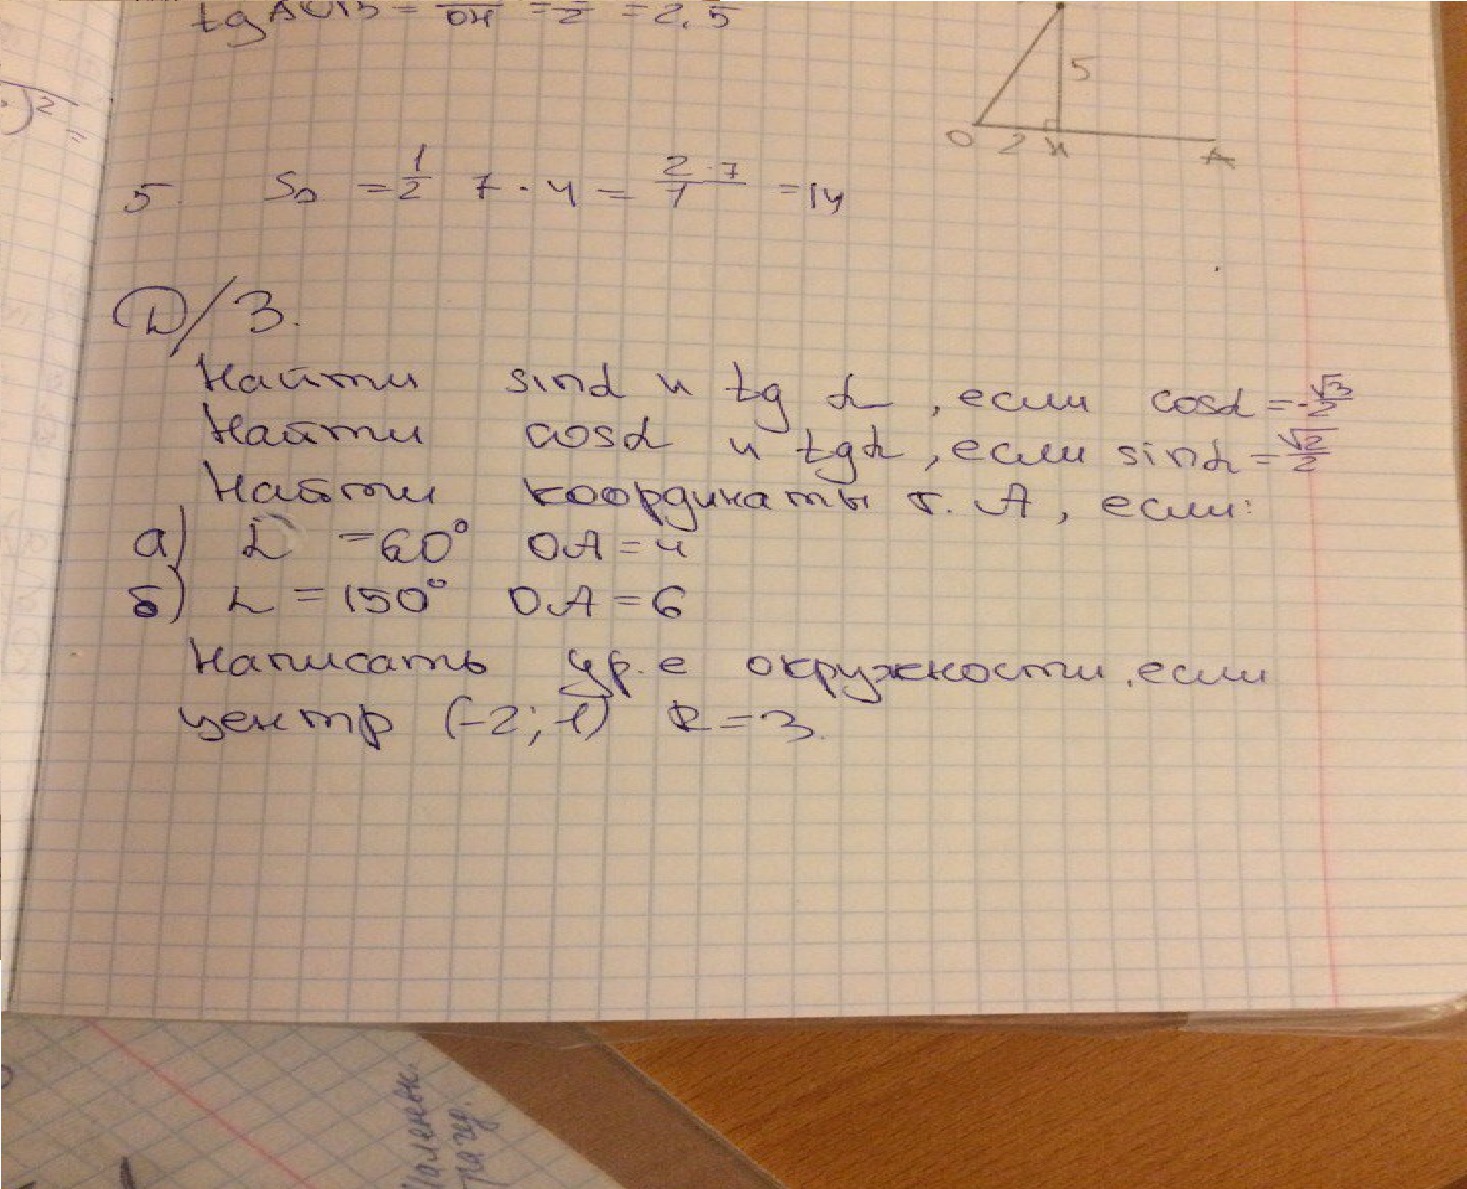 tg AOB = /OH = /2 = 2,5
)² =
5
O 2 H A
5. S△ = 1/2 7 · 4 = 2·7/1 = 14
Д/З.
Найти sinα и tg α, если cosα = -√3/2
Найти cosα и tgα, если sinα = √2/2
Найти координаты т. А, если:
а) α = 60° OA = 4
б) α = 150° OA = 6
Написать ур.е окружности, если
центр (-2; 1) R = 3.